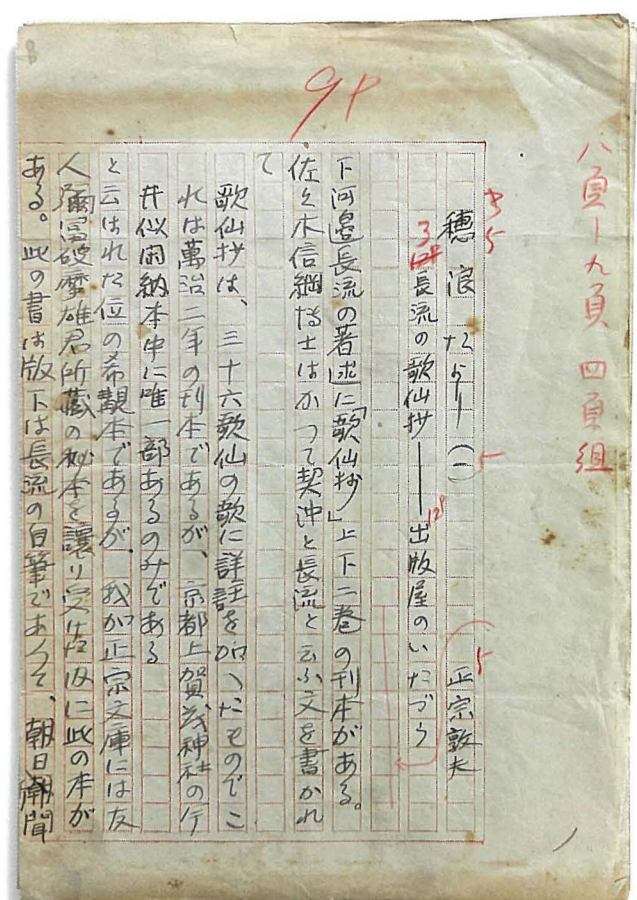 八頁―九頁 四頁組
9P
穂浪だより(一) 正宗敦夫
長流の歌仙抄――出版屋のいたづら
下河邉長流の著述に「歌仙抄」上下二巻の刊本がある。
佐々木信綱博士はかつて契沖と長流と云ふ文を書かれ
て
歌仙抄は、三十六歌仙の歌に詳註を加へたものでこ
れは萬治二年の刊本であるが、京都上賀茂神社の今
井似閑納本中に唯一部あるのみである
と云はれた位の希覯本であるが、我が正宗文庫には友
人彌富破摩雄君所蔵の秘本を譲り受けた為に此の本が
ある。此の書は版下は長流の自筆であつて、朝日新聞